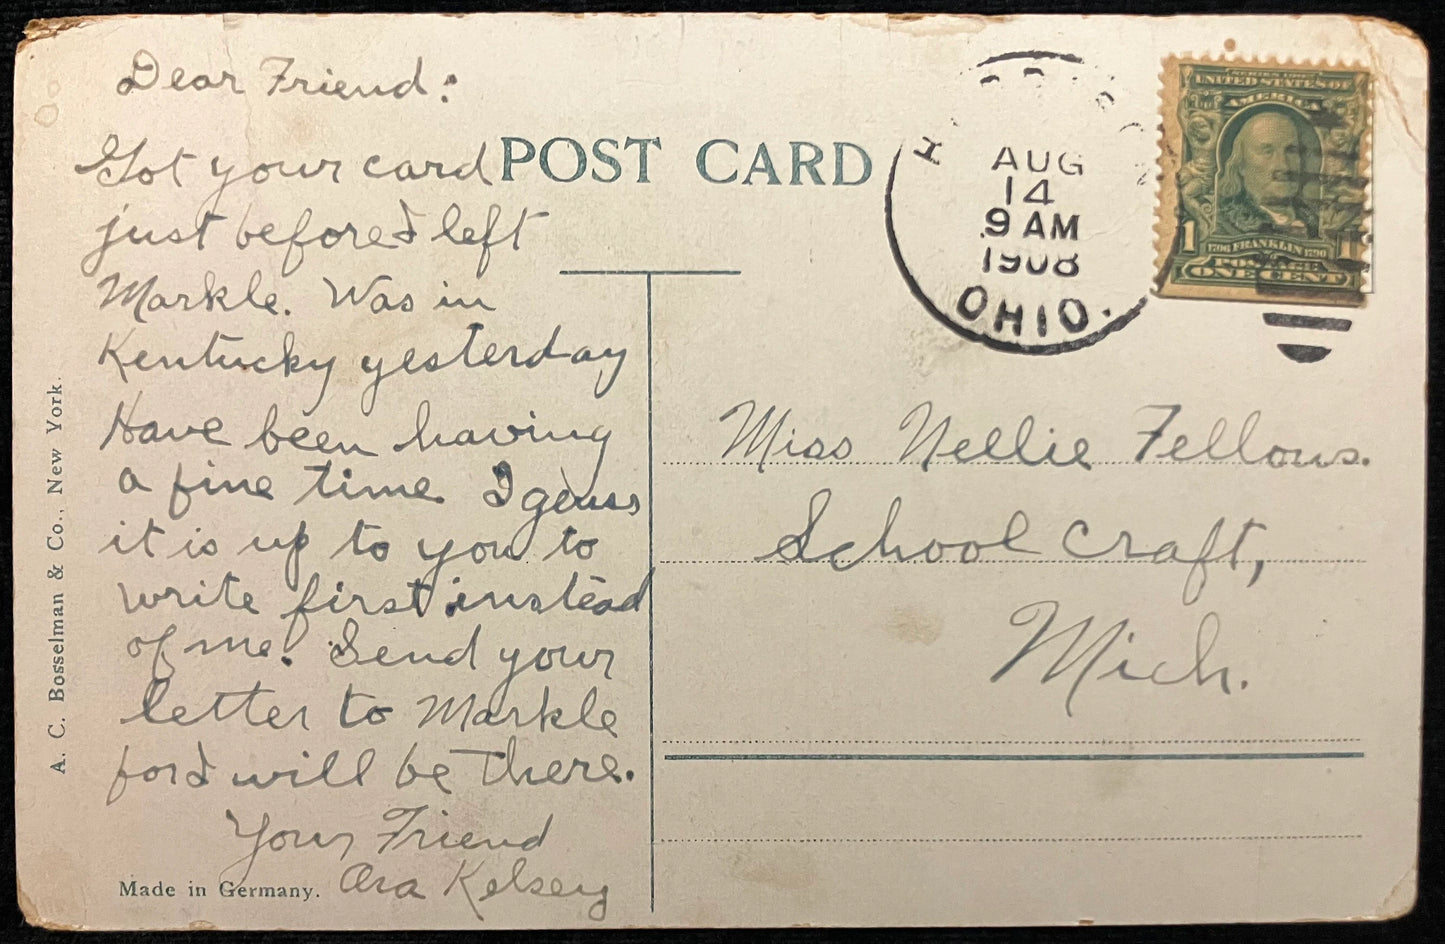 Dear Friend:
Got your card
just before I left
Markle. Was in
Kentucky yesterday
Have been having
a fine time. I guess
it is up to you to
write first instead
of me. Send your
letter to Markle
for I will be there.
Your Friend
Ora Kelsey
POST CARD
AUG
14
9 AM
1908
OHIO.
SERIES 1902
UNITED STATES OF
AMERICA
1
1706 FRANKLIN 1790
POSTAGE
ONE CENT
Miss Nellie Fellows.
School craft,
Mich.
A. C. Bosselman & Co., New York.
Made in Germany.